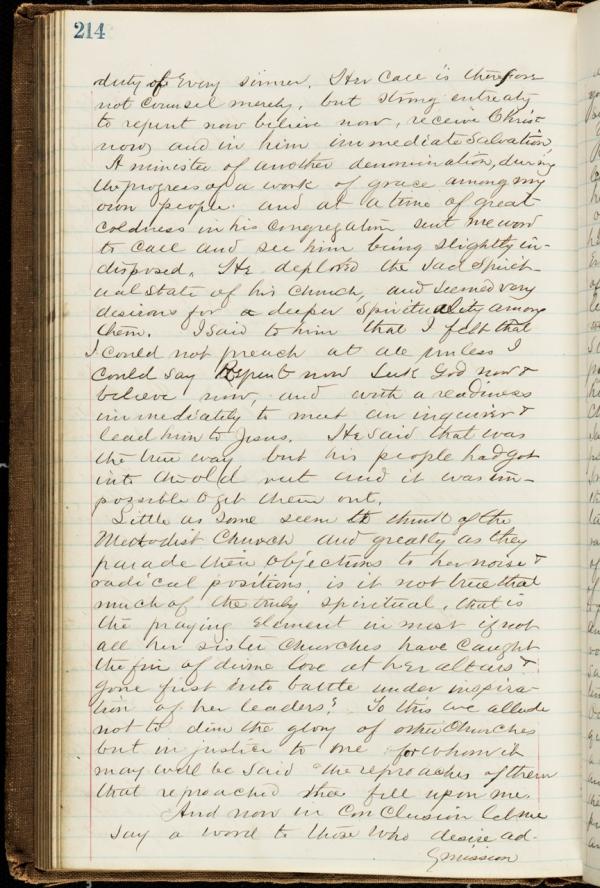 214
duty of Every sinner. Her Call is therefore
not Counsel merely, but strong entreaty
to repent now believe now, receive Christ
now, and in him immediate Salvation,
A minister of another denomination, during
the progress of a work of grace among my
own people. and at a time of great
coldness in his congregation sent me word
to call and see him being slightly in-
disposed. He deplored the sad Spirit-
ual State of his Church, and seemed very
desirous for a deeper Spirituality among
them. I said to him that I felt that
I could not preach at all unless I
could say Repent now Seek God now &
believe now, and with a readiness
immediately to meet an inquirer &
lead him to Jesus. He said that was
the true way but his people had got
into the old rut and it was im-
possible to get them out.
Little as some seem to think of the
Methodist Church and greatly as they
parade their objections to her noise &
radical positions, is it not true that
much of the truly spiritual, that is
the praying Element in most if not
all her sister Churches have caught
the fire of divine love at her altars &
gone first into battle under inspira-
tion of her leaders? To this we allude
not to dim the glory of other Churches
but in justice to one for whom it
may well be said "the reproaches of them
that reproached thee fell upon me.
And now in Conclusion let me
say a word to those who desire ad-
mission